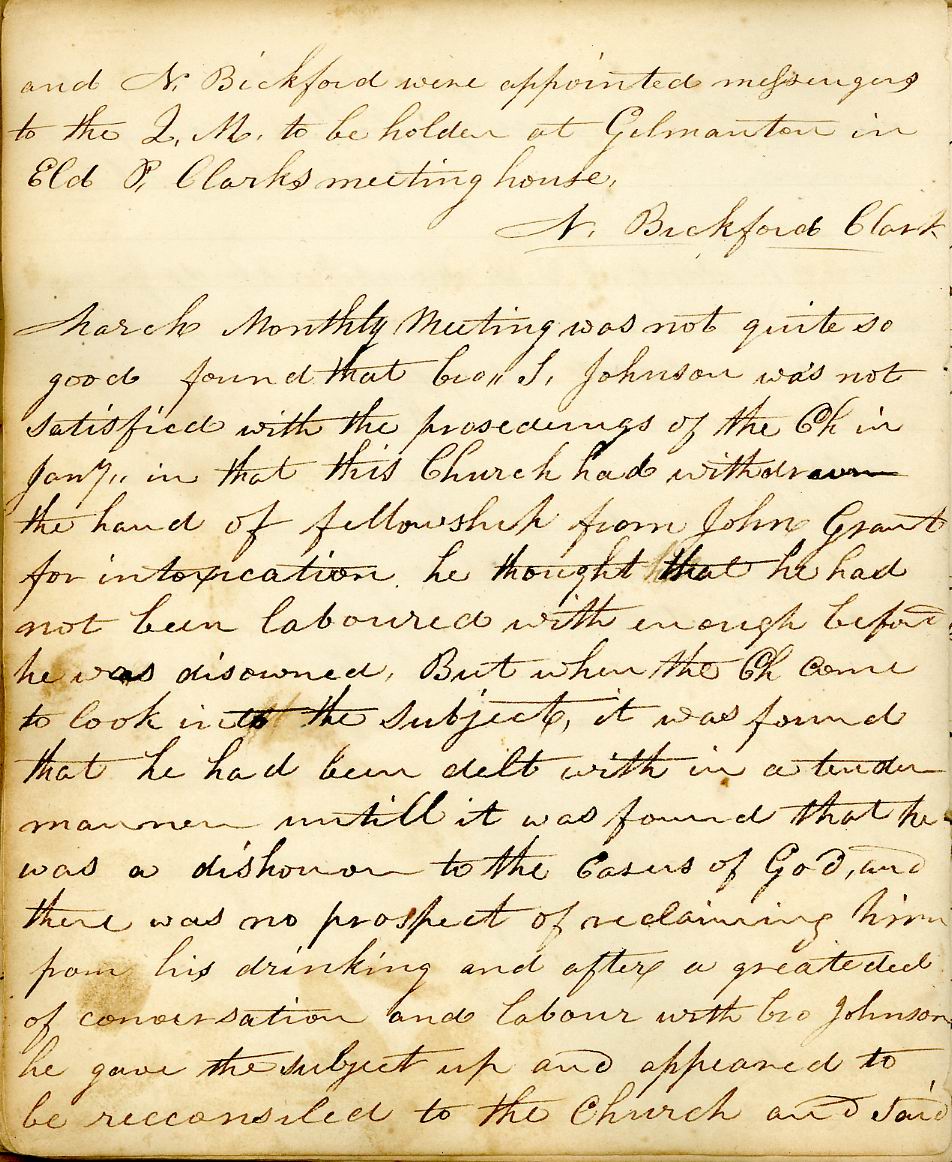 and N. Bickford were appointed messengers
to the Q. M. to be holden at Gilmanton in
Eld P. Clarks meeting house.
N. Bickford Clark
March Monthly Meeting was not quite so
good found that bro,, S. Johnson was not
satisfied with the prosedings of the Ch in
Jany,, in that this Church had withdrawn
the hand of fellowship from John Grant
for intoxication he thought that he had
not been laboured with enough before
he was disowned. But when the Ch come
to look into the subject, it was found
that he had been delt with in a tender
manner untill it was found that he
was a dishonor to the Casus of God, and
there was no prospect of reclaiming him
from his drinking and after a greate ded
of conversation and labour with bro Johnson
he gave the subject up and appeared to
be recconsiled to the Church and said